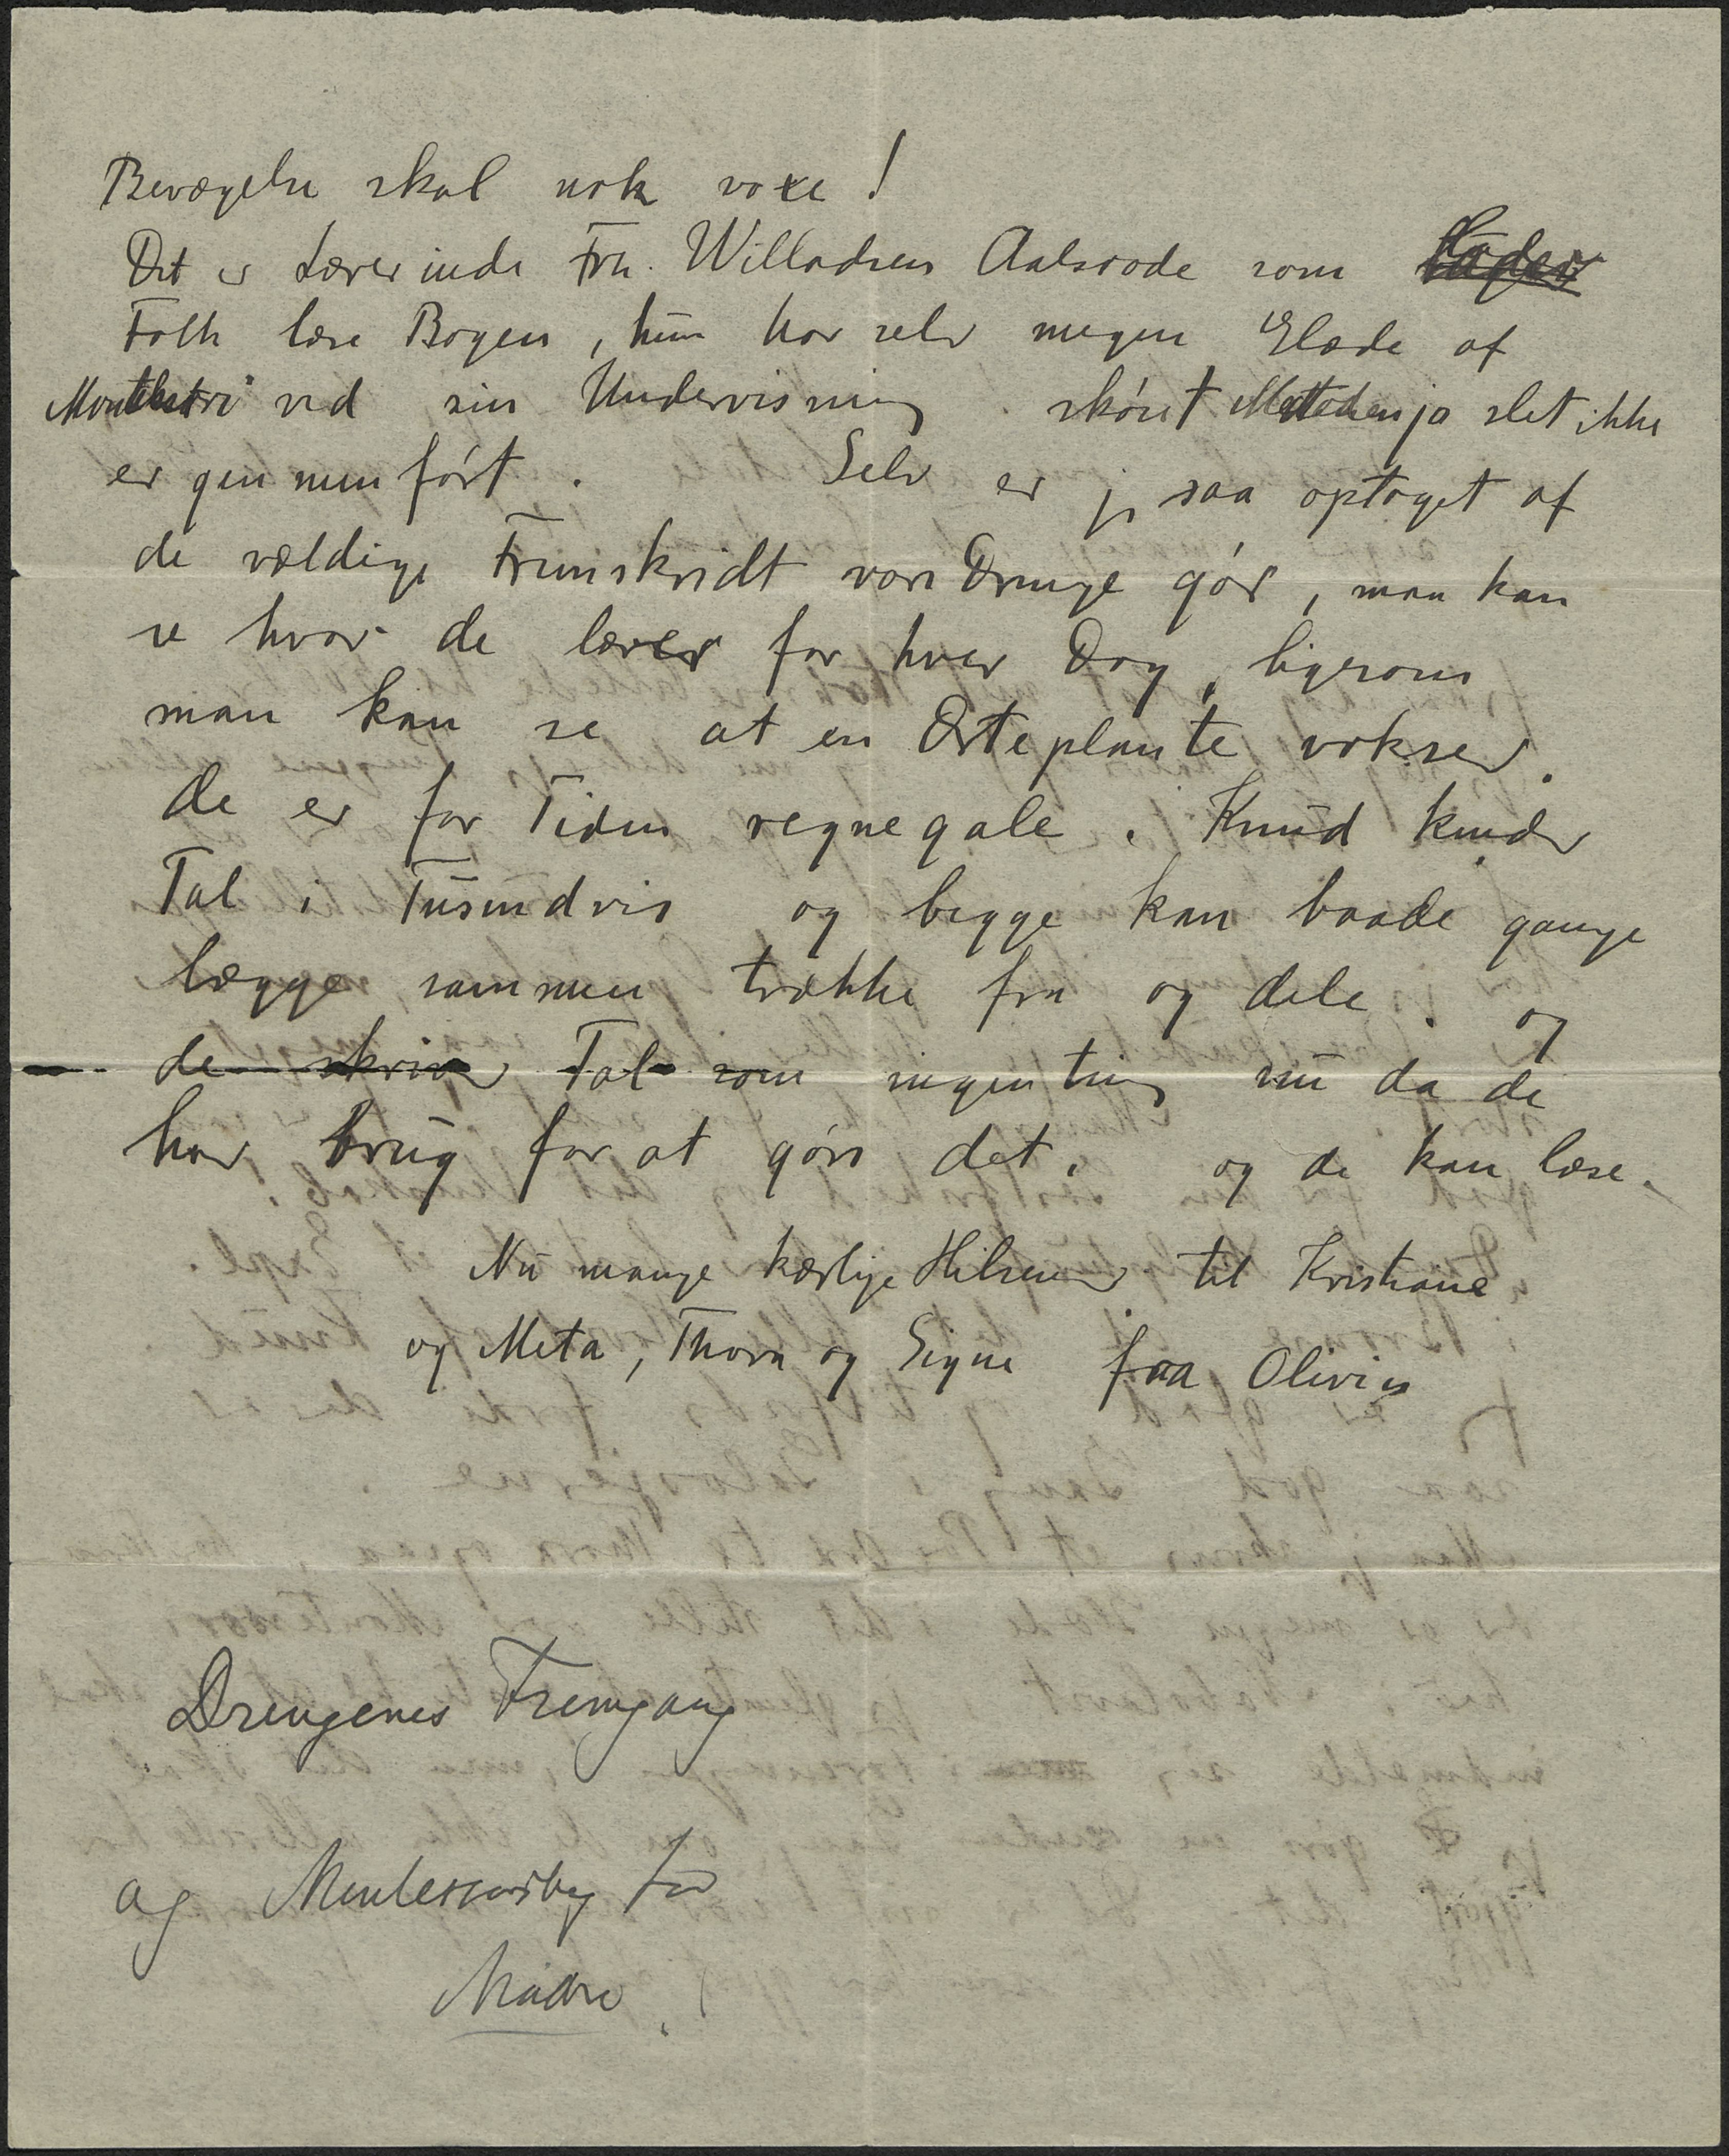 Bevægelse skal nok voxe!
Det er Lærerinde Fru. Willadsen Aalsrode som lader
Folk læse Bogen, hun har selv megen Glæde af
Montessori ved sin Undervisning. skønt Metoden jo slet ikke
er gennemført. Selv er jeg saa optaget af
de vældige Fremskridt vore Drenge gør, man kan
se hvor de lærer for hver Dag, ligesom
man kan se at en Ærteplante vokser.
de er for Tiden regnegale. Knud kender
Tal i Tusindvis og begge kan baade gange
lægge sammen trække fra og dele. og
de skriver Tal som ingenting nu da de
har brug for at gøre det, og de kan læse.
Nu mange kærlige Hilsener til Kristiane
og Meta, Thora og Signe fra Olivia
Drengenes Fremgang
og Montessoribog for
Mødre!